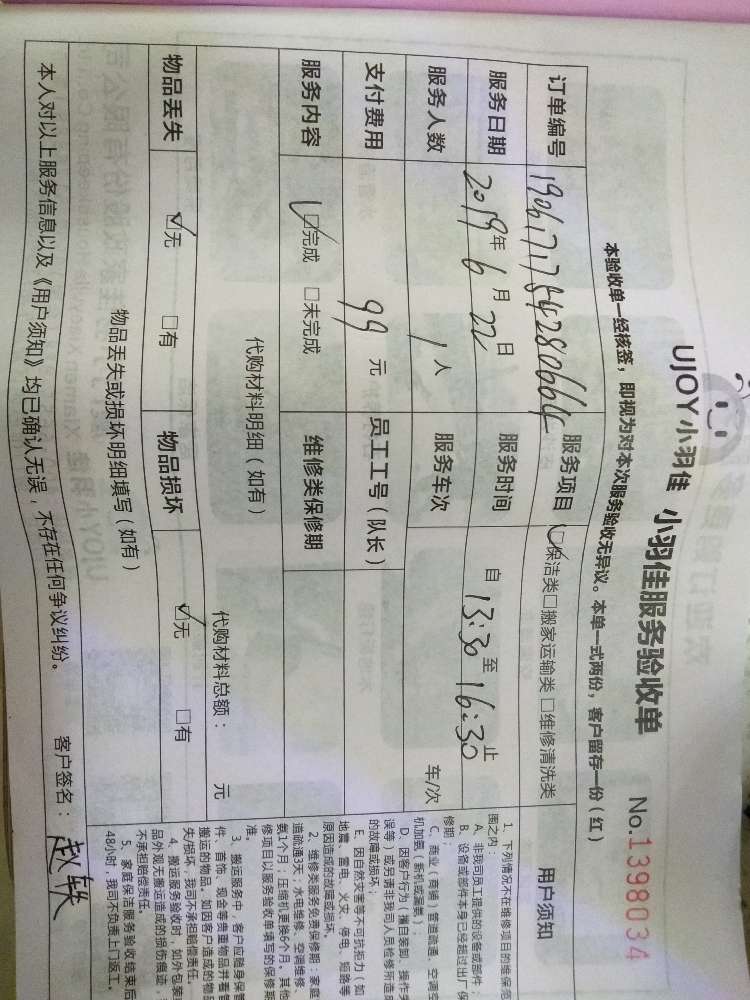 UJOY小羽佳 小羽佳服务验收单 No.1398034
本验收单一经核签，即视为对本次服务验收无异议。本单一式两份，客户留存一份（红）
订单编号 190617175428066 服务项目 ☑保洁类□搬家运输类 □维修清洗类
服务日期 2019年6月22日 服务时间 自 13:30 至 16:30 止
服务人数 1 人 服务车次 车/次
支付费用 99 元 员工工号（队长）
服务内容 ☑完成 □未完成 维修类保修期
代购材料明细（如有） 代购材料总额： 元
物品丢失 ☑无 □有 物品损坏 ☑无 □有
物品丢失或损坏明细填写（如有）
本人对以上服务信息以及《用户须知》均已确认无误，不存在任何争议纠纷。 客户签名：赵轶
用户须知
1、下列情况不在维修项目的维保范
围之内：
A、非我司员工提供的设备或部件；
B、设备或部件本身已经超过出厂保
修期；
C、商业（商铺）管道疏通、空调空
机加氨（新机或漏氨）；
D、因客户行为（擅自装卸、操作失
误等）或另请非我司人员检修引造成
的故障或损坏；
E、因自然灾害等不可抗拒力（如
地震、雷电、火灾、停电、短路等
原因造成的故障或损坏。
2、维修类服务免费保修期：家庭
道疏通3天；水电维修、空调维修、
氨1个月；压缩机更换6个月。其他
修项目以服务验收单填写的保修期
准。
3、搬运服务中，客户应随身保管
件、首饰、现金等贵重物品并看管
搬运的物品，如因客户造成的物品
失/损坏，我司不承担赔偿责任。
4、搬运服务验收时，如外包装
品外观无搬运造成的损伤痕迹，
不承担赔偿责任。
5、家庭保洁服务验收结束后
48小时，我司不负责上门返工。